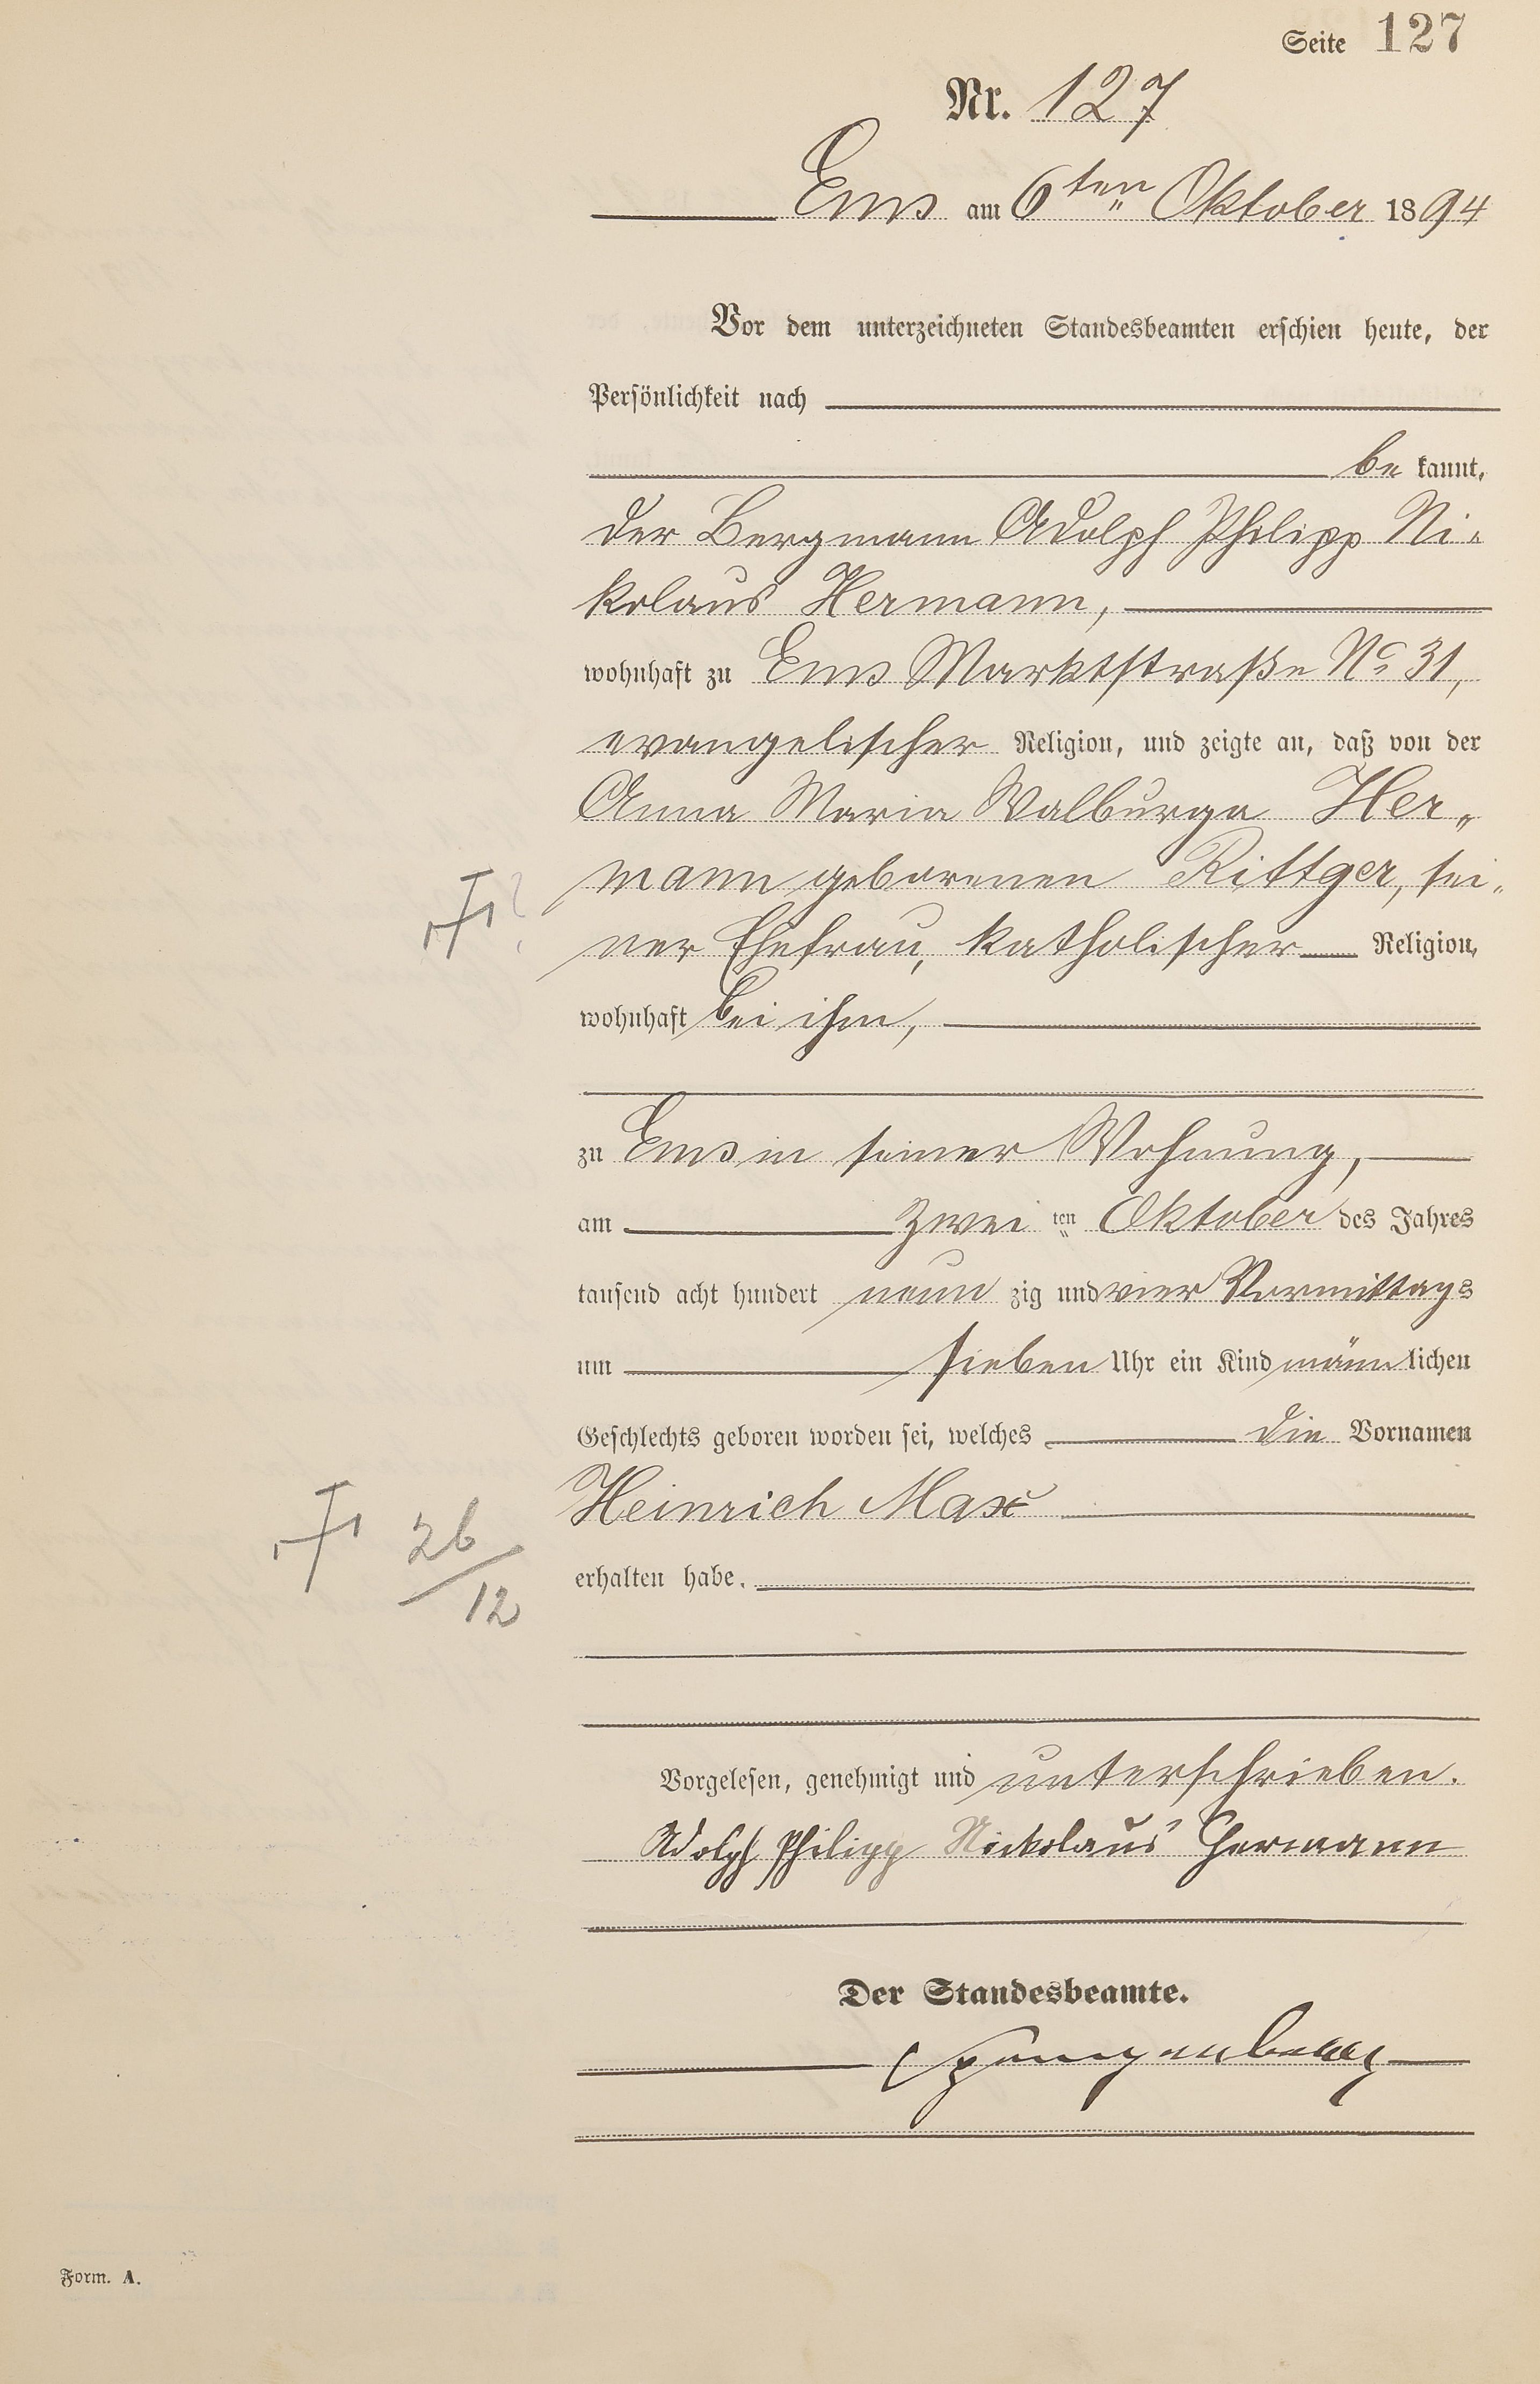 Seite 127
Nr. 127
Ems am 6ten Oktober 1894
Vor dem unterzeichneten Standesbeamten erschien heute, der
Persönlichkeit nach
be kannt,
der Bergmann Adolph Philipp Ni-
kolaus Hermann,
wohnhaft zu Ems Marktstraße No 31,
evangelischer Religion, und zeigte an, daß von der
Anna Maria Walburga Her-
mann geborenen Rittger, sei-
ner Ehefrau, katholischer Religion,
wohnhaft bei ihm,
zu Ems in seiner Wohnung,
am zwei ten Oktober des Jahres
tausend acht hundert neun zig und vier Vormittags
um sieben Uhr ein Kind männlichen
Geschlechts geboren worden sei, welches die Vornamen
Heinrich Max
26/12
erhalten habe.
Vorgelesen, genehmigt und unterschrieben.
Adolph Philipp Nickolaus Hermann
Der Standesbeamte.
Spangenberg
Form. A.